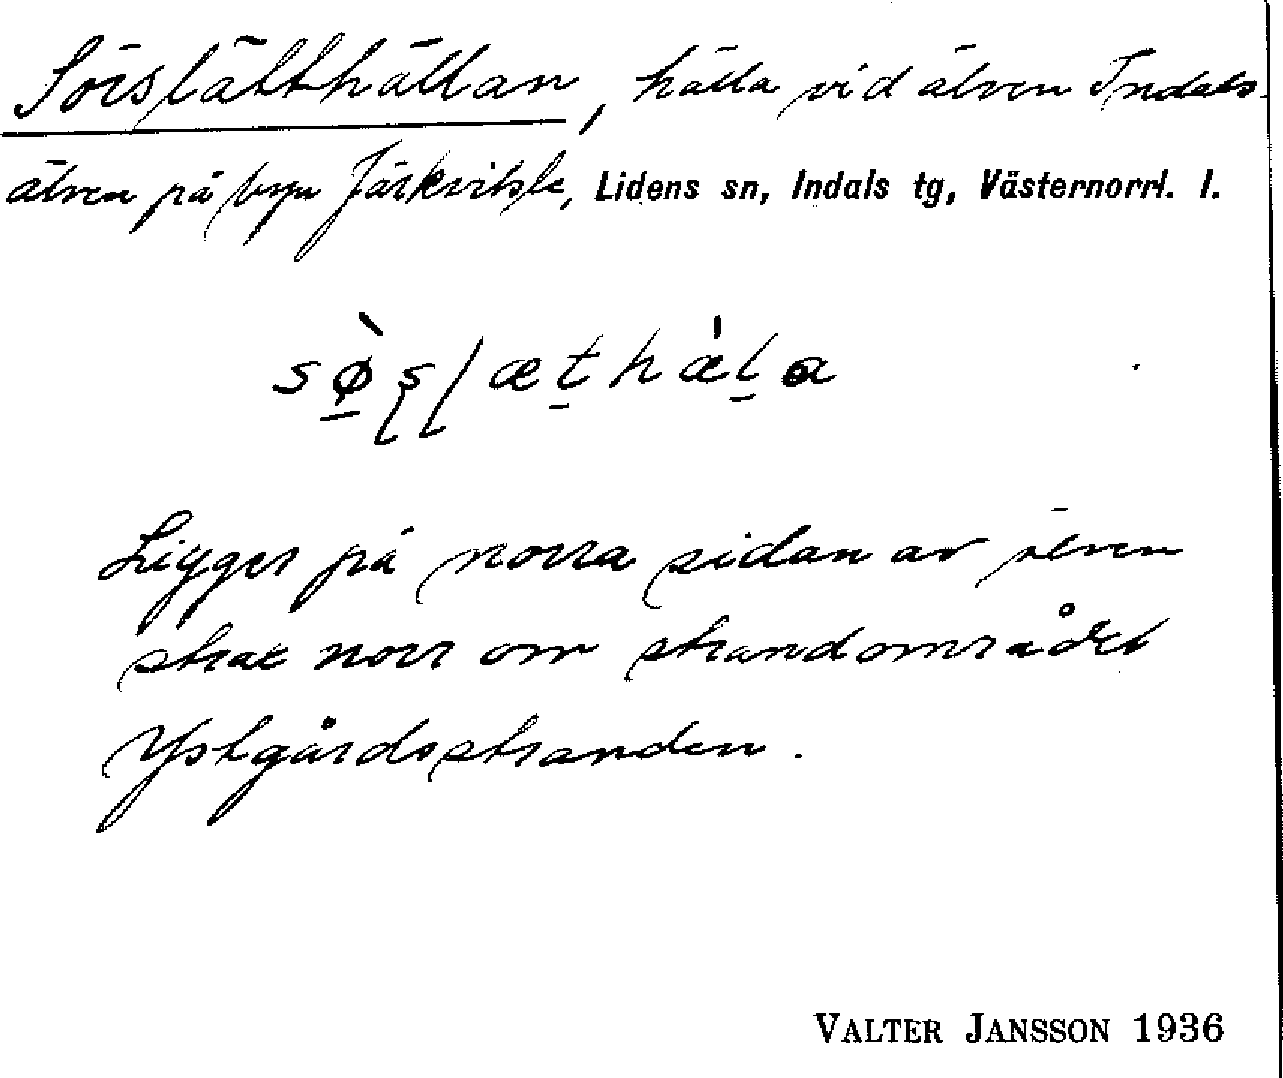 Sörslätthällan, hälla vid älven Indals-
älven på byn Järkvitsle, Lidens sn, Indals tg, Västernorrl. l.
sø̠̀ʂlæt̠hæ̍l̠a
Ligger på norra sidan av älven
strax norr om strandområdet
Ystgårdsstranden.
VALTER JANSSON 1936